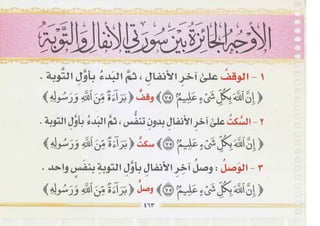 الأوجه الجائزة بين سورتي الأنفال والتوبة
١ - الوقفُ علىٰ آخرِ الأنفالِ ، ثمَّ البَدءُ بأوَّلِ التَّوبة .
﴿ إِنَّ ٱللَّهَ بِكُلِّ شَىْءٍ عَلِيمٌۢ ٧٥ ﴾ وقفٌ ﴿ بَرَآءَةٌ مِّنَ ٱللَّهِ وَرَسُولِهِ ﴾
٢ - السَّكتُ علىٰ آخرِ الأنفالِ بدونِ تنفُّس ، ثمَّ البَدءُ بأوَّلِ التوبة .
﴿ إِنَّ ٱللَّهَ بِكُلِّ شَىْءٍ عَلِيمٌۢ ٧٥ ﴾ سكتٌ ﴿ بَرَآءَةٌ مِّنَ ٱللَّهِ وَرَسُولِهِ ﴾
٣ - الوَصلُ : وصلُ آخرِ الأنفالِ بأوَّلِ التوبةِ بنفَسٍ واحد .
﴿ إِنَّ ٱللَّهَ بِكُلِّ شَىْءٍ عَلِيمٌۢ ٧٥ ﴾ وصلٌ ﴿ بَرَآءَةٌ مِّنَ ٱللَّهِ وَرَسُولِهِ ﴾
٤٦٣